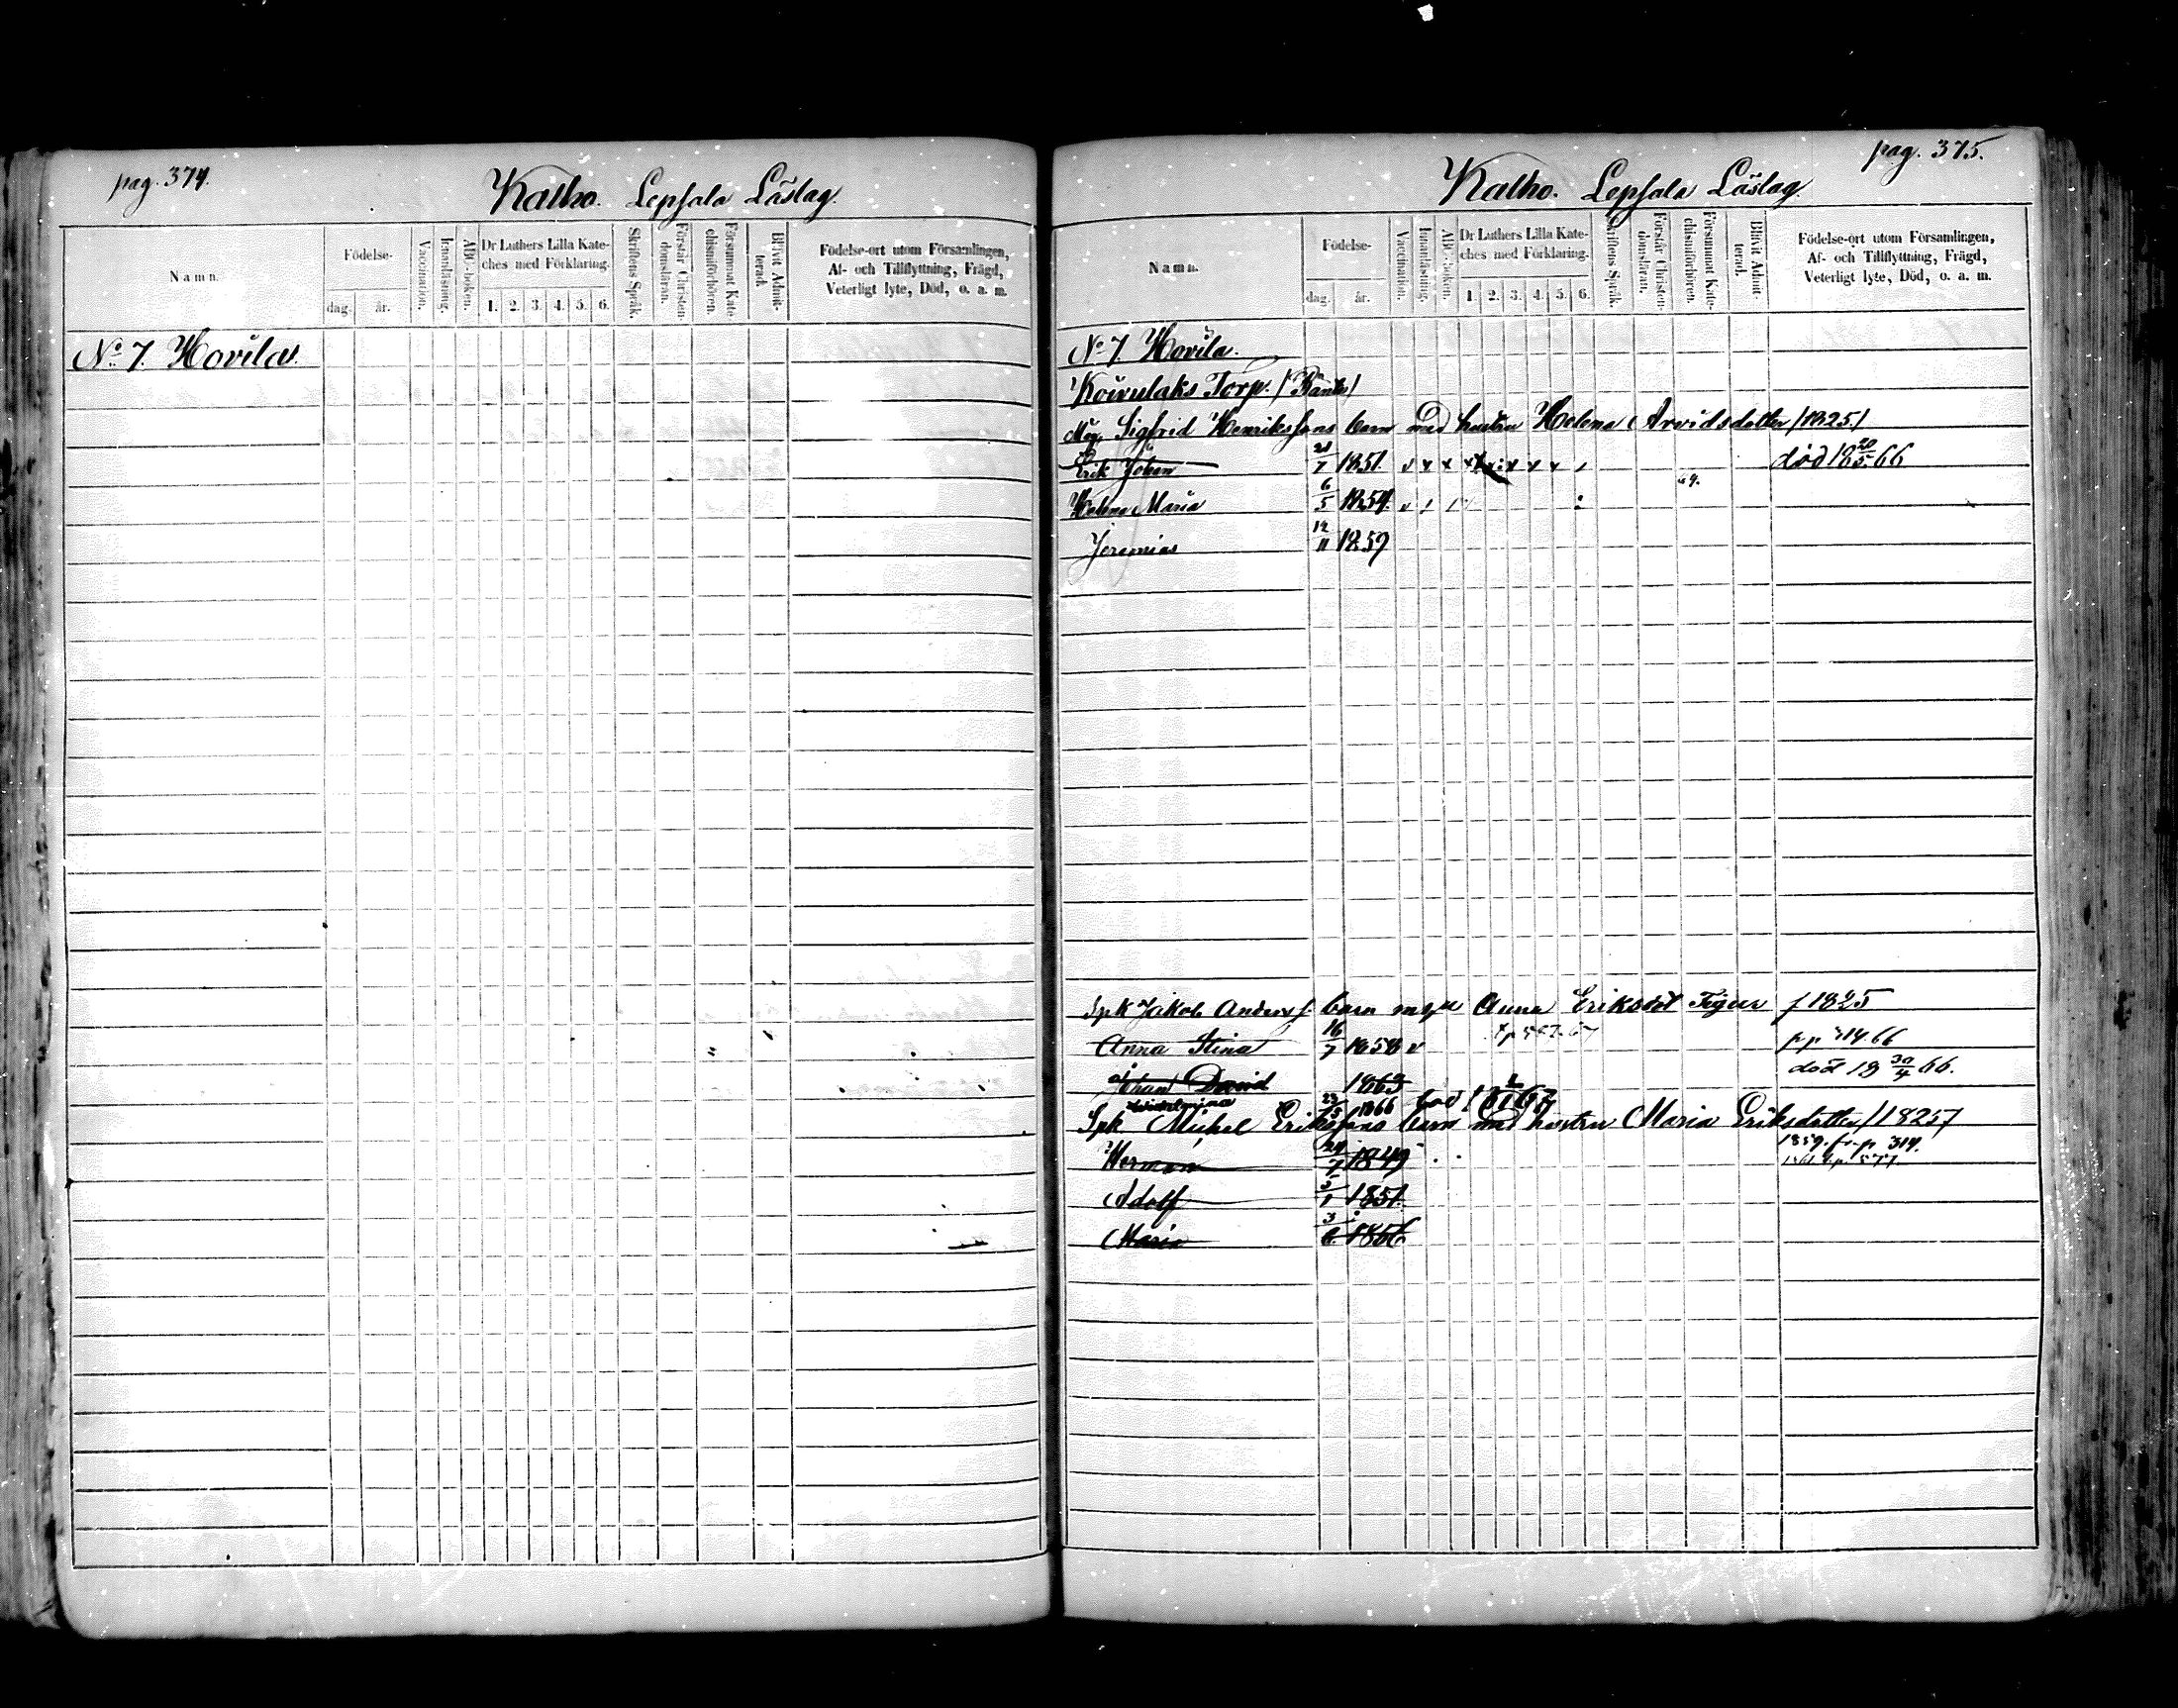 pag. 374.
Katho. Lepsala Läslag.
Namn.
Födelse-
dag.
år.
Vaccination.
Innanläsning.
ABC-boken.
Dr Luthers Lilla Kate-
ches med Förklaring.
1. 2. 3. 4. 5. 6.
Skriftens Språk.
Förstår Christen-
domsläran.
Försummat Kate-
chismiförhören.
Blifvit Admit-
terad.
Födelse-ort utom Församlingen,
Af- och Tillflyttning, Frägd,
Veterligt lyte, Död, o. a. m.
No 7. Hovila.
pag. 375.
Katho. Lepsala Läslag.
Namn.
Födelse-
dag.
år.
Vaccination.
Innanläsning.
ABC-boken.
Dr Luthers Lilla Kate-
ches med Förklaring.
1. 2. 3. 4. 5. 6.
Skriftens Språk.
Förstår Christen-
domsläran.
Försummat Kate-
chismiförhören.
Blifvit Admit-
terad.
Födelse-ort utom Församlingen,
Af- och Tillflyttning, Frägd,
Veterligt lyte, Död, o. a. m.
No 7. Hovila.
Koivulaks Torp.
Sigfrid Henrikssons barn med hustru Helena Arvidsdotter /1825/
Erik Johan 21/7 1851. v x x död 18 20/5 66
Helena Maria 6/5 1854. v
Jeremias 12/11 1859
Spk Jakob Anderss. barn Anna Eriksdot Tiger f 1825
Anna Stina 16/7 1858 v 314.66
Johan David 1863 död 18 30/4 66.
Wilhelmina 23/5 1866
Spk Michel Erikssons barn med hustru Maria Eriksdotter /1825/
Herman 24/7 1849 1859. fr. p 314.
Adolf 5/1 1851.
Maria 3/6 1856